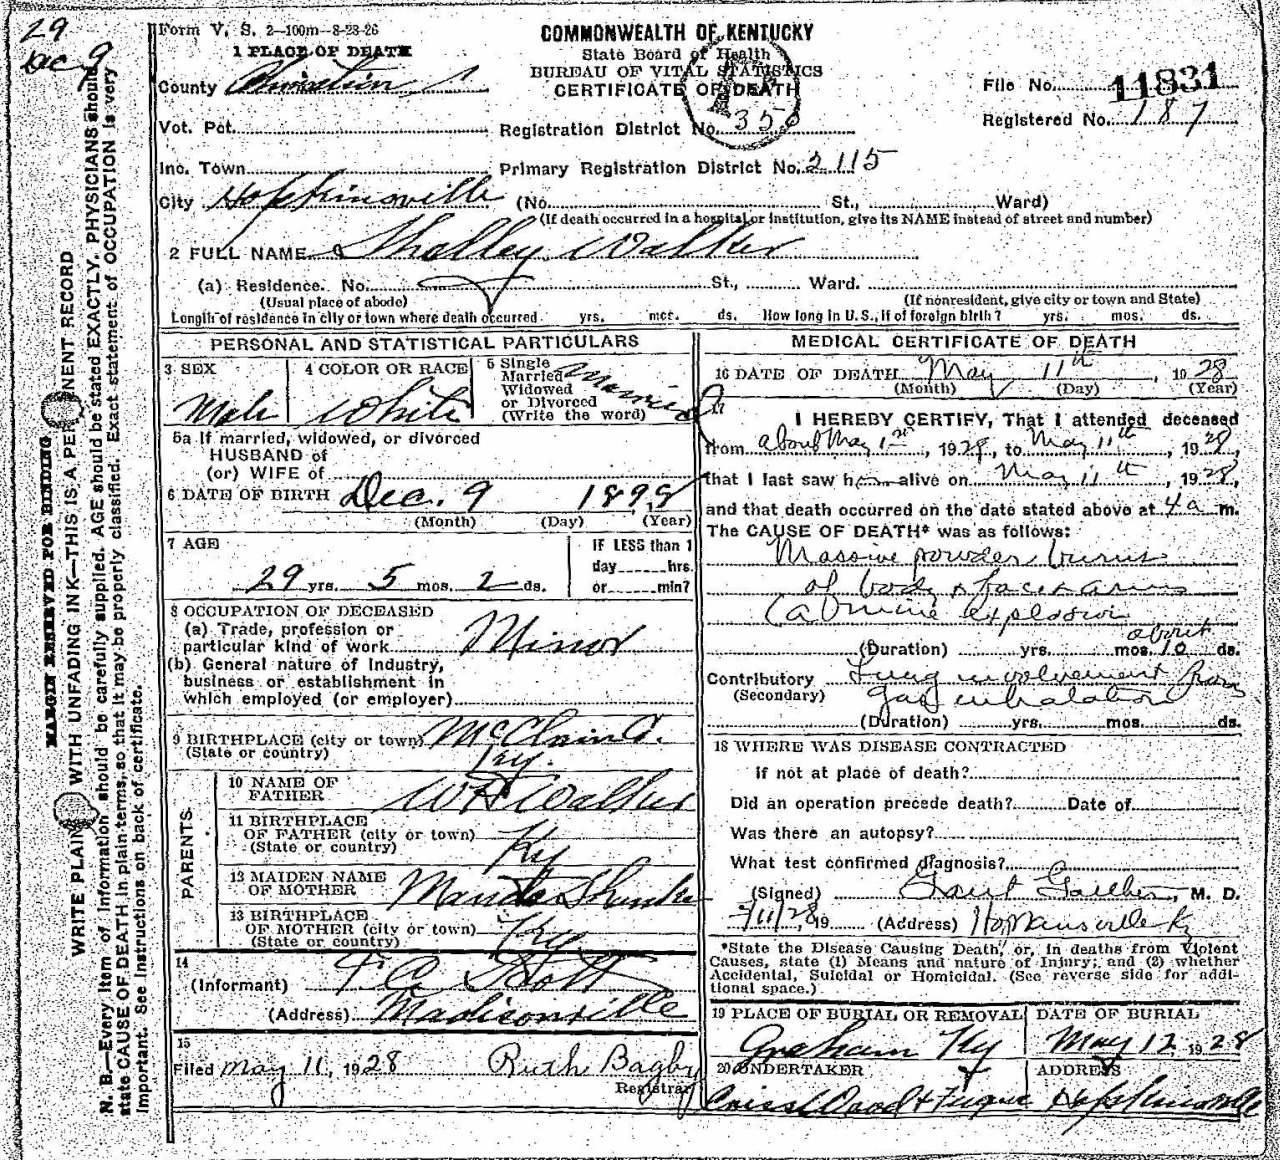 29
Dec 9
Form V. S. 2—100m—8-23-26
1 PLACE OF DEATH
COMMONWEALTH OF KENTUCKY
State Board of Health
BUREAU OF VITAL STATISTICS
CERTIFICATE OF DEATH
File No. 11831
Registered No. 187
County Christian
Vot. Pct.
Registration District No. 350
Inc. Town
Primary Registration District No. 2115
City Hopkinsville (No. St., Ward)
(If death occurred in a hospital or institution, give its NAME instead of street and number)
2 FULL NAME Shelley Walker
(a) Residence. No. St., Ward.
(Usual place of abode) (If nonresident, give city or town and State)
Length of residence in city or town where death occurred yrs. mos. ds. How long in U.S., if of foreign birth? yrs. mos. ds.
PERSONAL AND STATISTICAL PARTICULARS
3 SEX
Male
4 COLOR OR RACE
White
5 Single
Married
Widowed
or Divorced
(Write the word)
Married
5a If married, widowed, or divorced
HUSBAND of
(or) WIFE of
6 DATE OF BIRTH Dec. 9 1898
(Month) (Day) (Year)
7 AGE
29 yrs. 5 mos. 2 ds.
IF LESS than 1
day hrs.
or min?
8 OCCUPATION OF DECEASED
(a) Trade, profession or
particular kind of work Minor
(b) General nature of Industry,
business or establishment in
which employed (or employer)
9 BIRTHPLACE (city or town) McClain Co.
(State or country) Ky.
PARENTS
10 NAME OF
FATHER W H Walker
11 BIRTHPLACE
OF FATHER (city or town)
(State or country) Ky
12 MAIDEN NAME
OF MOTHER
13 BIRTHPLACE
OF MOTHER (city or town)
(State or country) Ky.
14
(Informant)
(Address) Madisonville
15
Filed May 11, 1928 Ruth Bagby
Registrar
MEDICAL CERTIFICATE OF DEATH
16 DATE OF DEATH May 11th, 1928
(Month) (Day) (Year)
17
I HEREBY CERTIFY, That I attended deceased
from about May 1st, 1928, to May 11th, 1928,
that I last saw him alive on May 11th, 1928,
and that death occurred on the date stated above at 4 a m.
The CAUSE OF DEATH* was as follows:
Massive powder burns
of body & face & arms
(a mine explosion
(Duration) yrs. mos. about 10 ds.
Contributory Lung involvement from
(Secondary) gas inhalation
(Duration) yrs. mos. ds.
18 WHERE WAS DISEASE CONTRACTED
if not at place of death?
Did an operation precede death? Date of
Was there an autopsy?
What test confirmed diagnosis?
(Signed) Gant Gaither, M. D.
5/11/28, 19 (Address) Hopkinsville Ky
*State the Disease Causing Death, or, in deaths from Violent
Causes, state (1) Means and nature of Injury; and (2) whether
Accidental, Suicidal or Homicidal. (See reverse side for addi-
tional space.)
19 PLACE OF BURIAL OR REMOVAL
Graham Ky
DATE OF BURIAL
May 12, 1928
20 UNDERTAKER
ADDRESS
Hopkinsville
MARGIN RESERVED FOR BINDING
WRITE PLAINLY WITH UNFADING INK—THIS IS A PERMANENT RECORD
N. B.—Every item of information should be carefully supplied. AGE should be stated EXACTLY. PHYSICIANS should
state CAUSE OF DEATH in plain terms, so that it may be properly classified. Exact statement of OCCUPATION is very
important. See instructions on back of certificate.